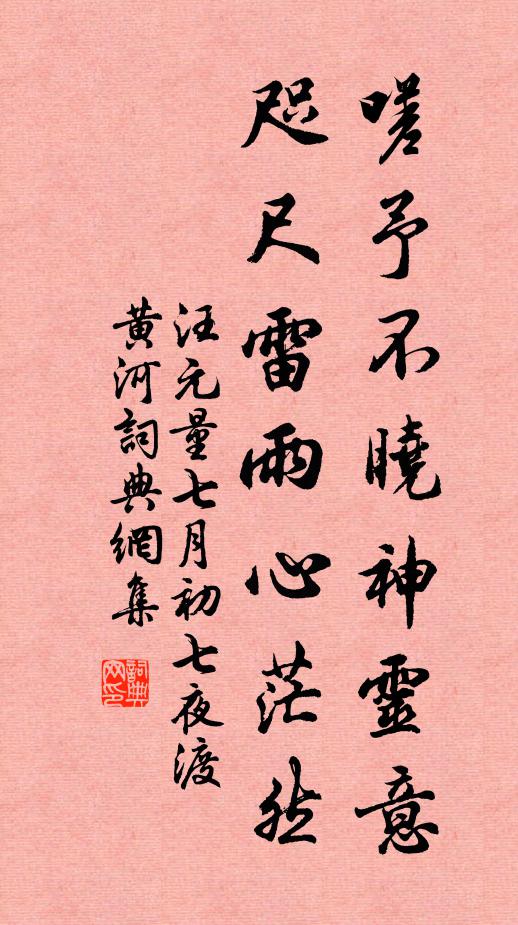 嗟予不曉神靈意
咫尺雷雨心茫然
汪元量七月初七夜渡
黃河詞典網集
詞典
网印